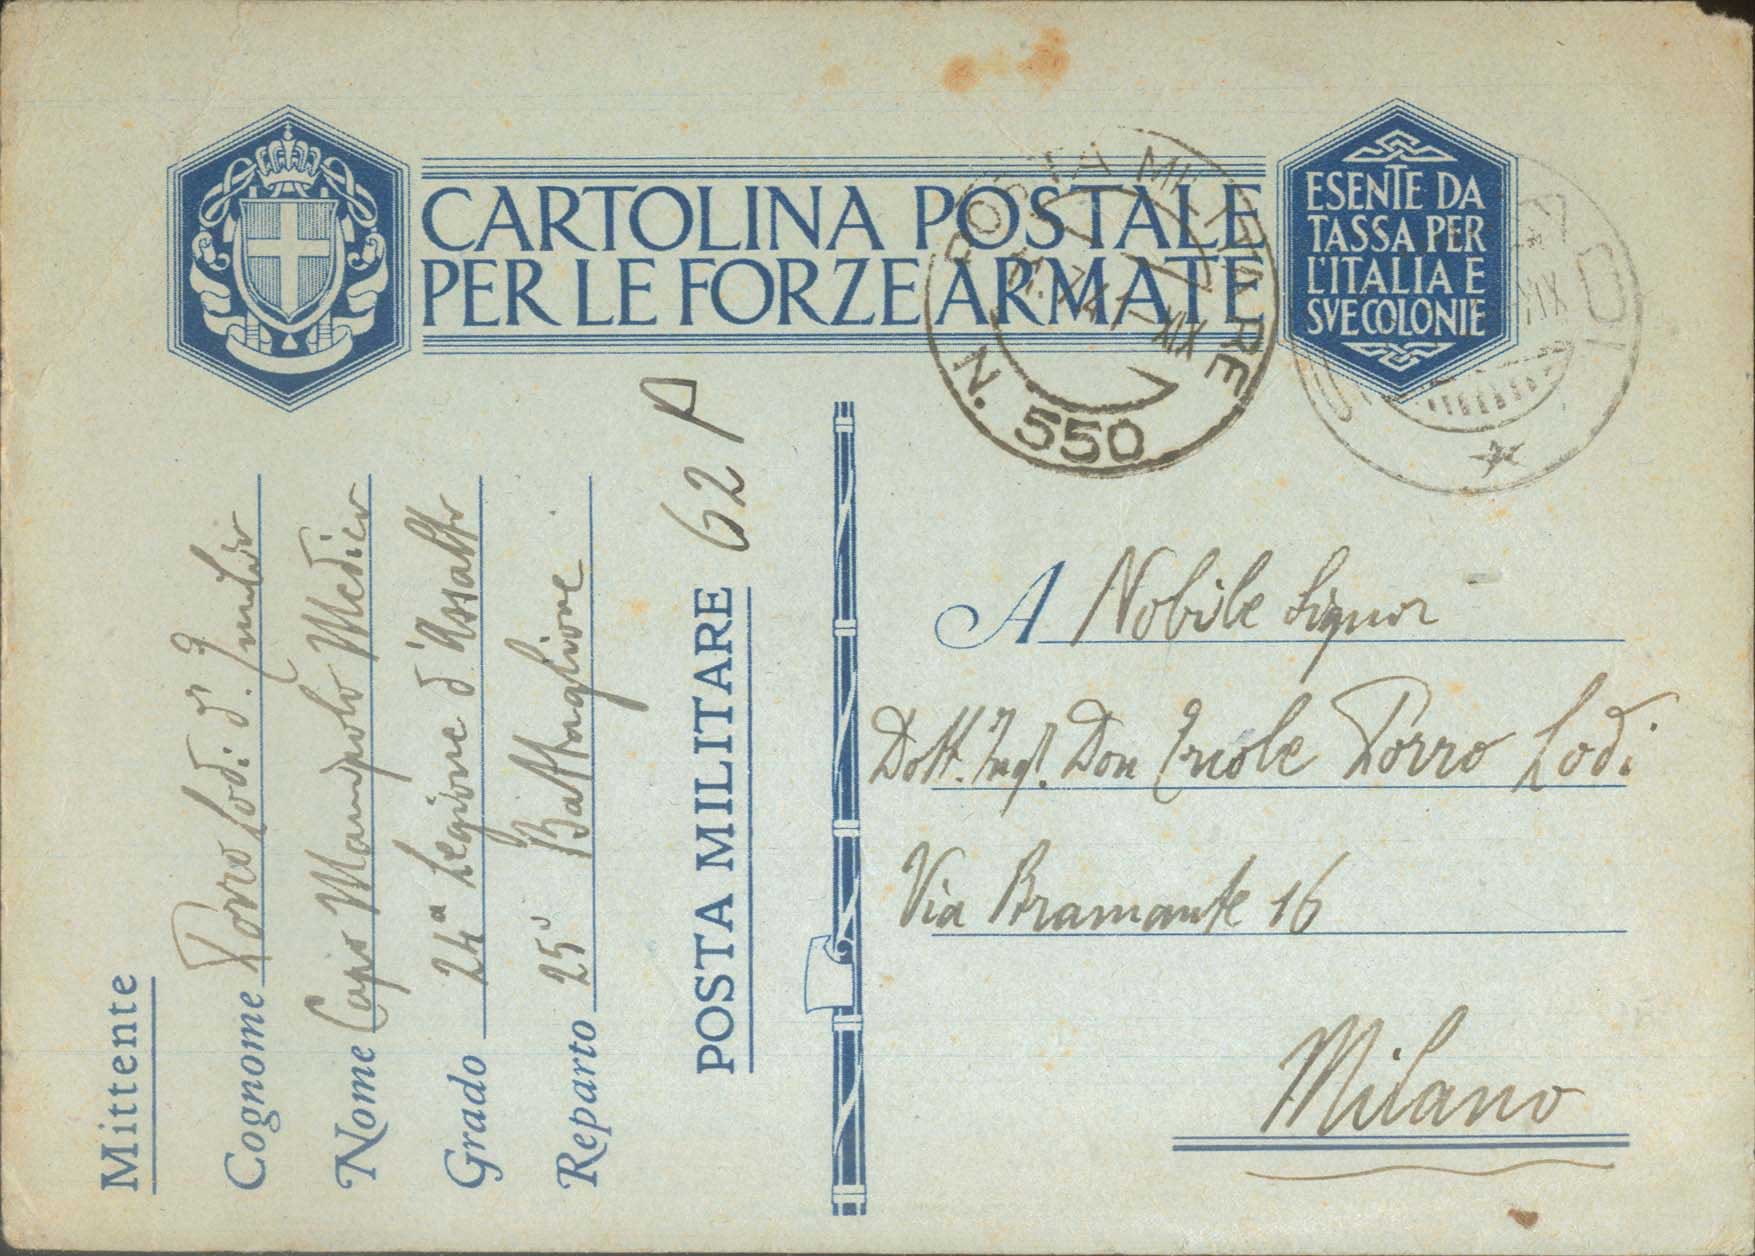 CARTOLINA POSTALE
PER LE FORZE ARMATE
ESENTE DA
TASSA PER
L'ITALIA E
SVE COLONIE
POSTA MILITARE
N. 550
XIX
Mittente
Cognome Porro Lodi d'
Nome Capo Manipolo Medico
Grado 24a Legione d'Assalto
Reparto 25o Battaglione
POSTA MILITARE 62 P
A Nobile Signor
Dott. Ing. Don Ercole Porro Lodi
Via Bramante 16
Milano